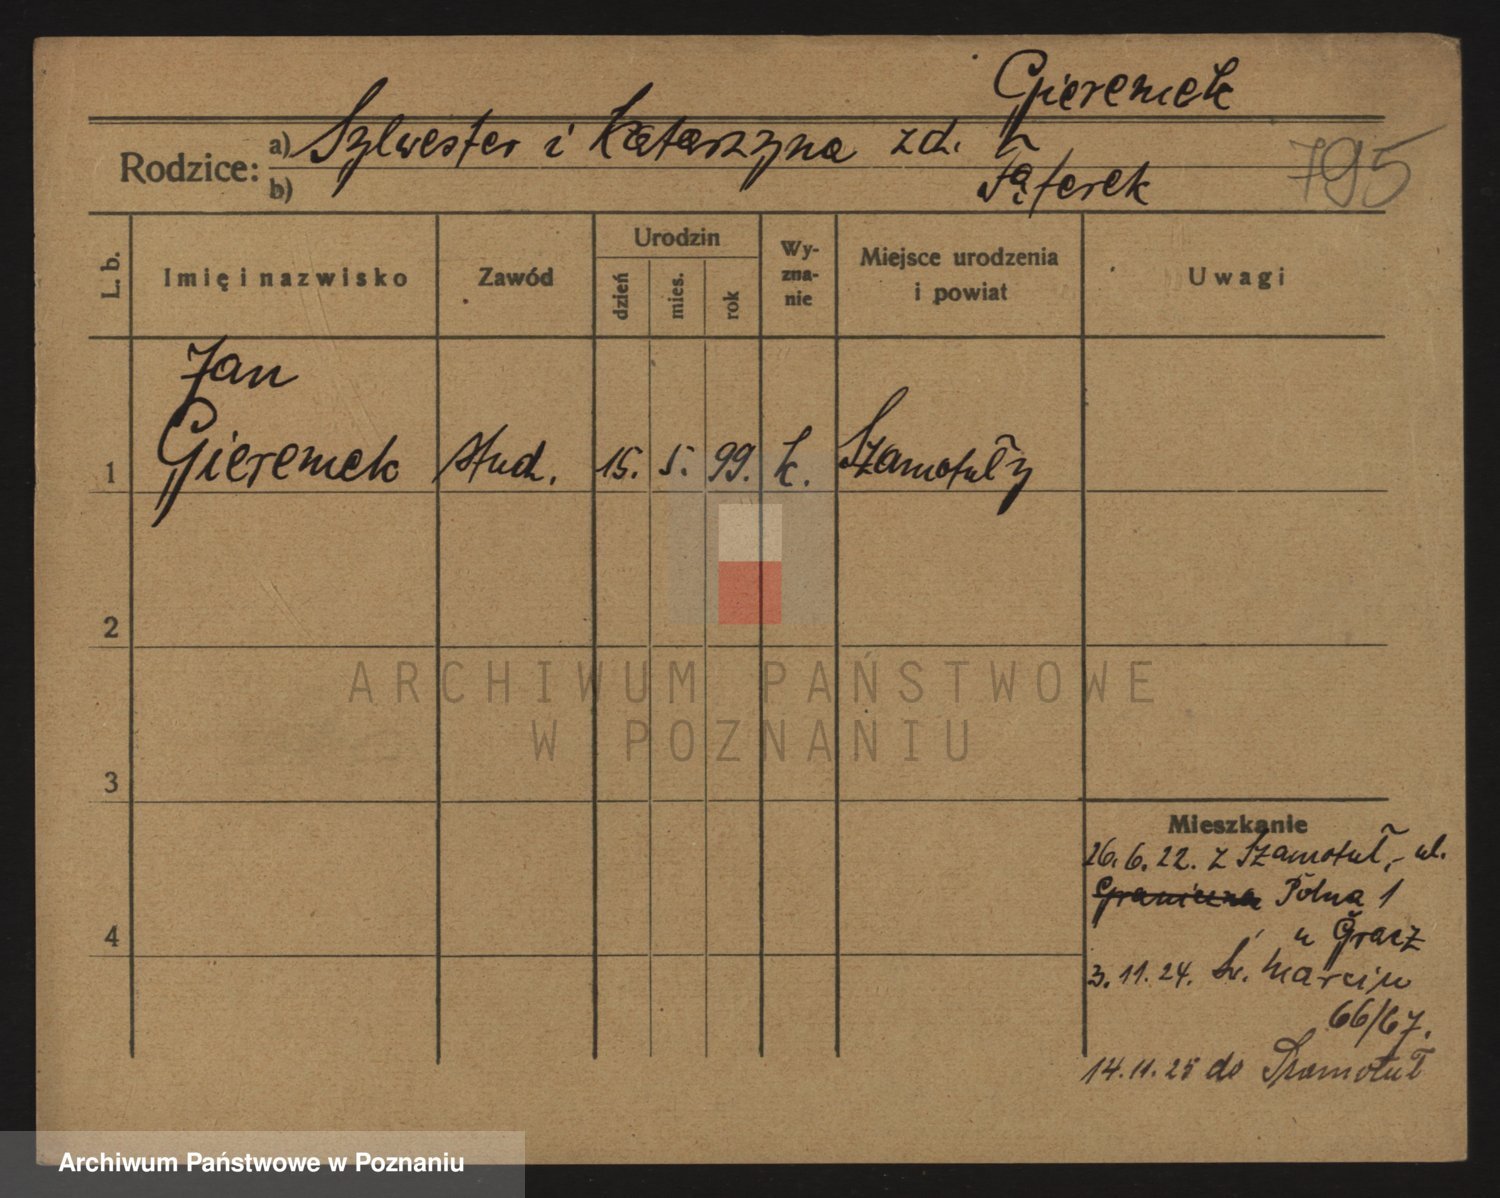 Gieremek
Rodzice: a) Sylwester i Katarzyna z d.
b) Fąferek
795
L. b.
Imię i nazwisko
Zawód
Urodzin
dzień
mies.
rok
Wy-
zna-
nie
Miejsce urodzenia
i powiat
Uwagi
Jan
1 Gieremek stud. 15. 5. 99. k. Szamotuły
2
ARCHIWUM PAŃSTWOWE
W POZNANIU
3
Mieszkanie
26. 6. 22. z Szamotuł, - ul.
Graniczna Polna 1
4
u Gracz
3. 11. 24. Św. Marcin
66/67.
14. 11. 25 do Szamotuł
Archiwum Państwowe w Poznaniu